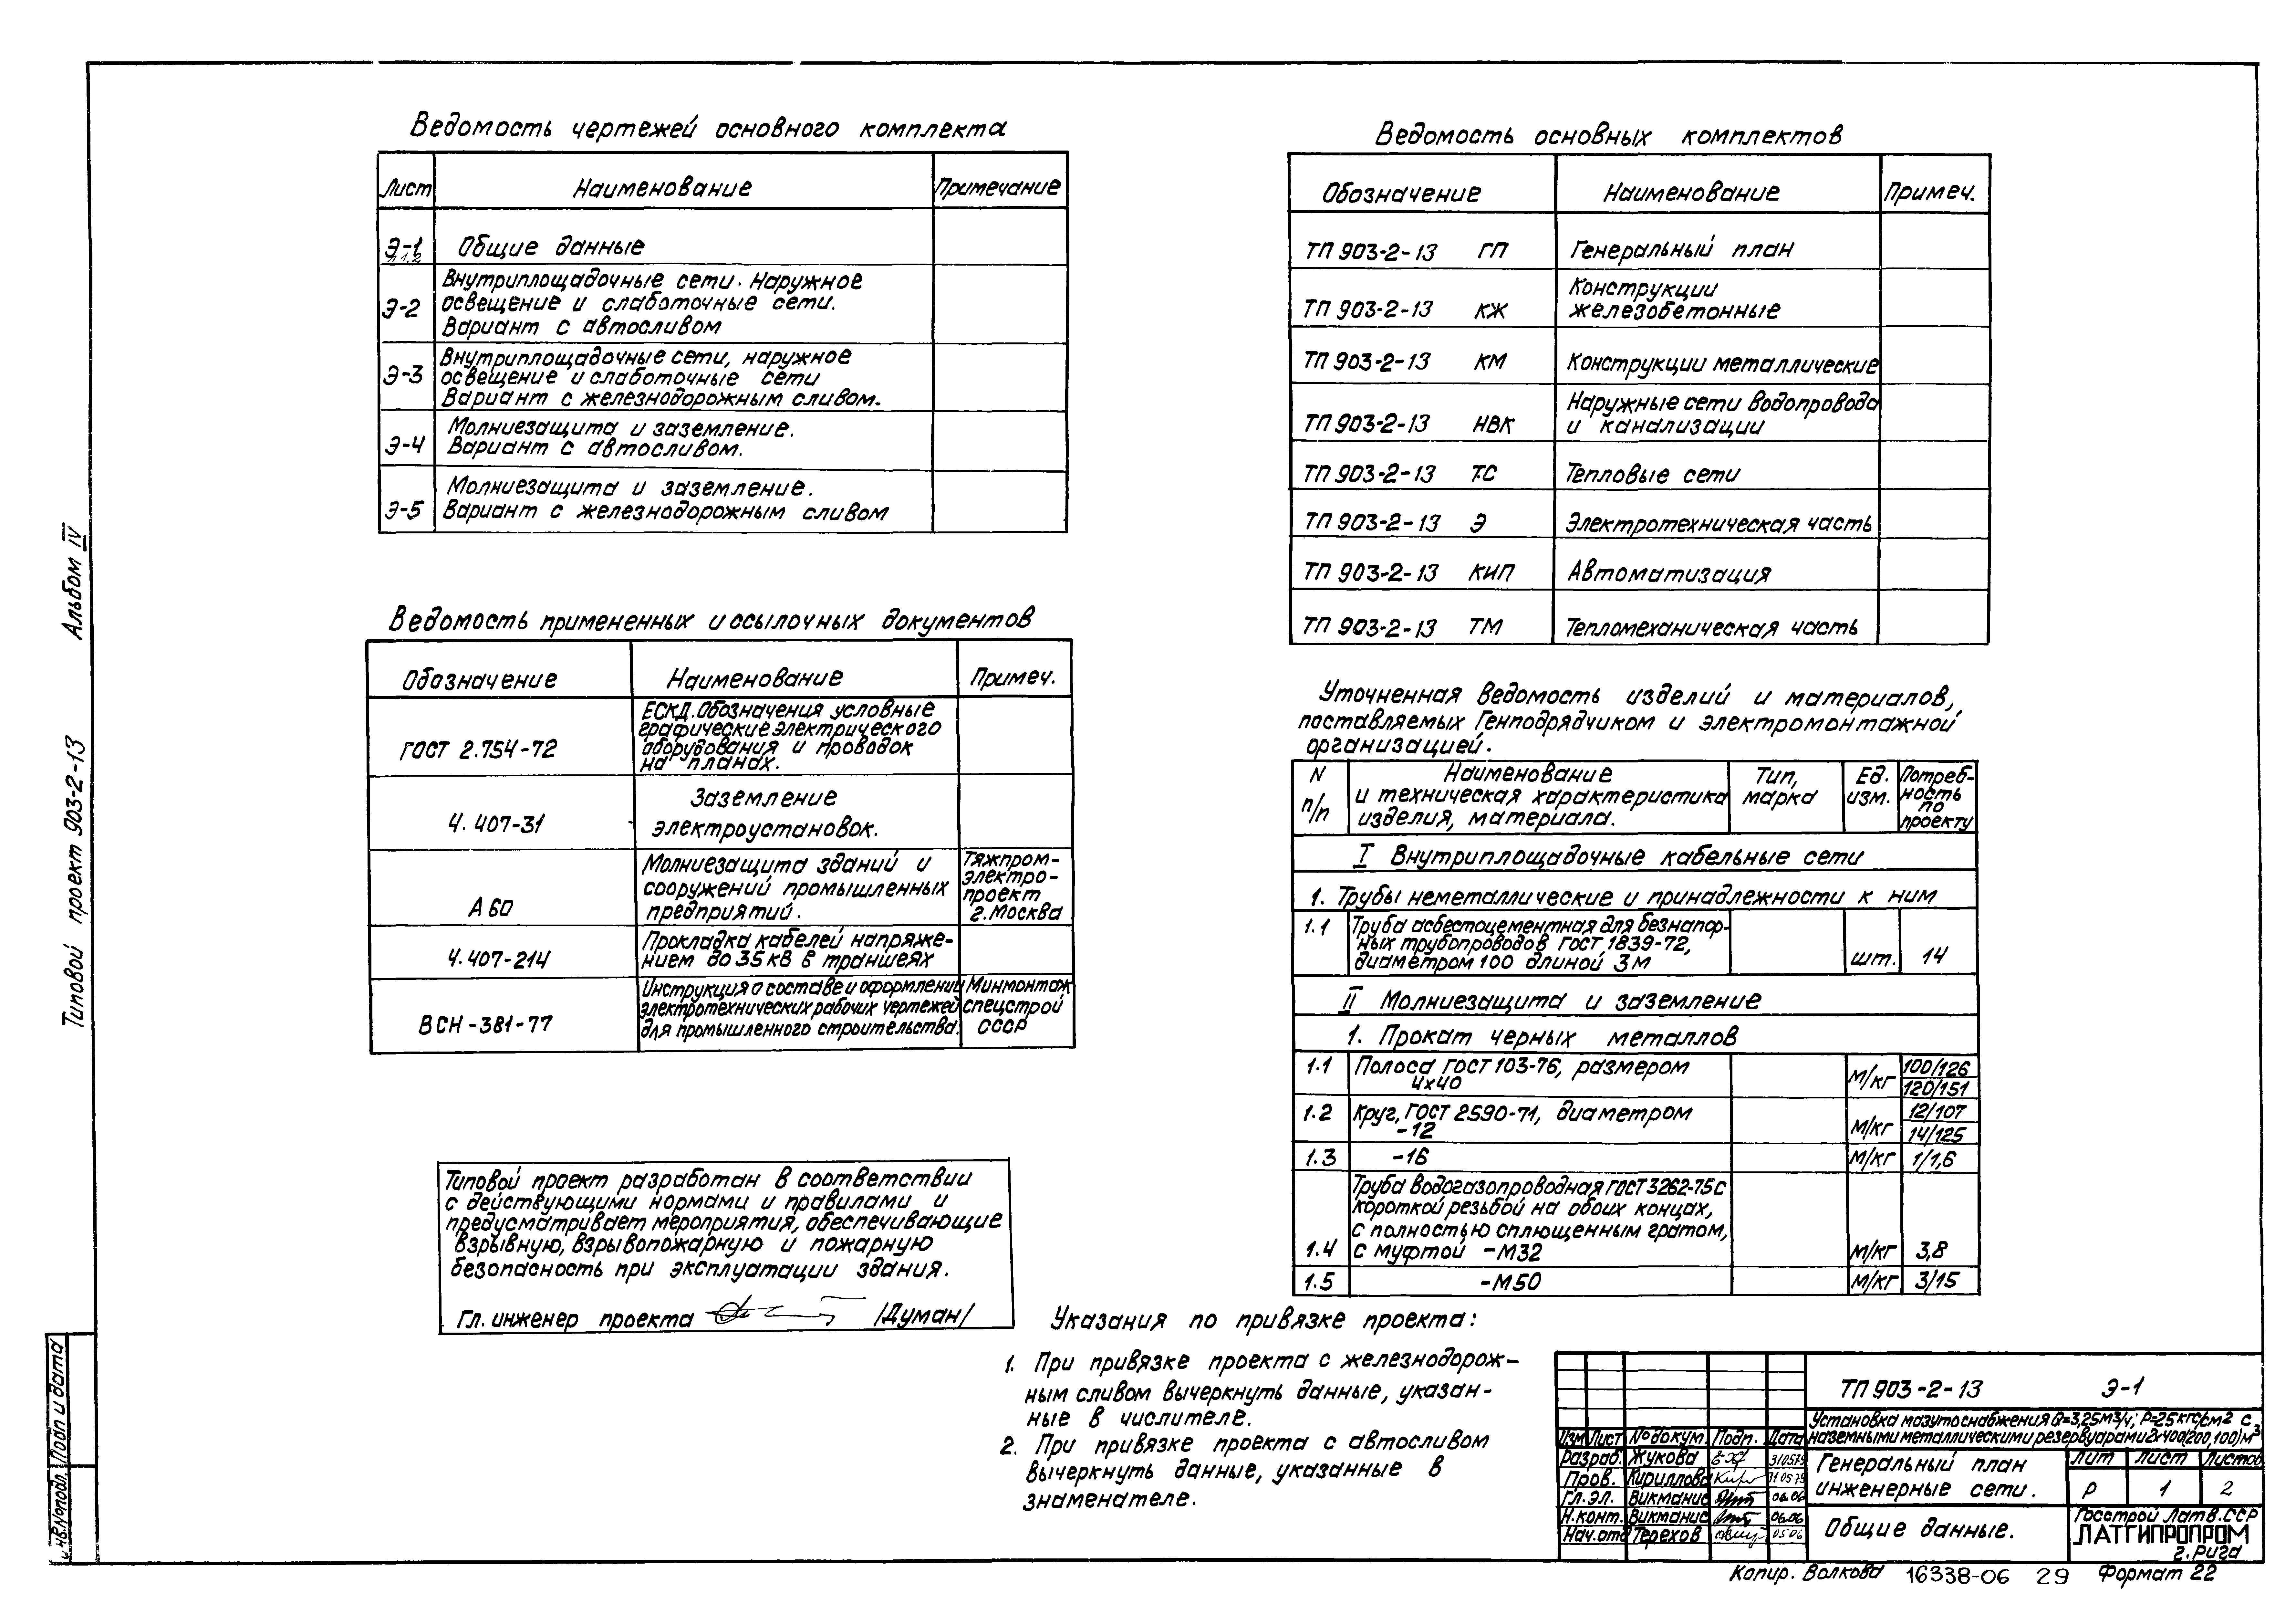 Ведомость чертежей основного комплекта
Лист Наименование Примечание
Э-1 Общие данные
л 1,2
Внутриплощадочные сети. Наружное
Э-2 освещение и слаботочные сети.
Вариант с автосливом
Внутриплощадочные сети, наружное
Э-3 освещение и слаботочные сети
Вариант с железнодорожным сливом.
Молниезащита и заземление.
Э-4 Вариант с автосливом.
Молниезащита и заземление.
Э-5 Вариант с железнодорожным сливом
Ведомость примененных и ссылочных документов
Обозначение Наименование Примеч.
ЕСКД. Обозначения условные
графические электрического
ГОСТ 2.754-72 оборудования и проводок
на планах.
Заземление
4.407-31 электроустановок.
Молниезащита зданий и Тяжпром-
сооружений промышленных электро-
А 60 предприятий. проект
г. Москва
Прокладка кабелей напряже-
4.407-214 нием до 35 кВ в траншеях
Инструкция о составе и оформлении Минмонтаж
электротехнических рабочих чертежей спецстрой
ВСН-381-77 для промышленного строительства. СССР
Типовой проект разработан в соответствии
с действующими нормами и правилами и
предусматривает мероприятия, обеспечивающие
взрывную, взрывопожарную и пожарную
безопасность при эксплуатации здания.
Гл. инженер проекта /Думан/
Ведомость основных комплектов
Обозначение Наименование Примеч.
ТП 903-2-13 ГП Генеральный план
Конструкции
ТП 903-2-13 КЖ железобетонные
ТП 903-2-13 КМ Конструкции металлические
Наружные сети водопровода
ТП 903-2-13 НВК и канализации
ТП 903-2-13 ТС Тепловые сети
ТП 903-2-13 Э Электротехническая часть
ТП 903-2-13 КИП Автоматизация
ТП 903-2-13 ТМ Тепломеханическая часть
Уточненная ведомость изделий и материалов,
поставляемых Генподрядчиком и электромонтажной
организацией.
N п/п Наименование и техническая характеристика изделия, материала. Тип, марка Ед. изм. Потреб-ность по проекту
I Внутриплощадочные кабельные сети
1. Трубы неметаллические и принадлежности к ним
1.1 Труба асбестоцементная для безнапор-
ных трубопроводов ГОСТ 1839-72,
диаметром 100 длиной 3м шт. 14
II Молниезащита и заземление
1. Прокат черных металлов
1.1 Полоса ГОСТ 103-76, размером 100/126
4х40 м/кг 120/151
1.2 Круг, ГОСТ 2590-71, диаметром 12/107
-12 м/кг 14/125
1.3 -16 м/кг 1/1,6
Труба водогазопроводная ГОСТ 3262-75 с
короткой резьбой на обоих концах,
с полностью сплющенным гратом,
1.4 с муфтой -М32 м/кг 3,8
1.5 -М50 м/кг 3/15
Указания по привязке проекта:
1. При привязке проекта с железнодорож-
ным сливом вычеркнуть данные, указан-
ные в числителе.
2. При привязке проекта с автосливом
вычеркнуть данные, указанные в
знаменателе.
ТП 903-2-13 Э-1
Установка мазутоснабжения Q=3,25м3/ч; P=25кгс/см2 с
наземными металлическими резервуарами 2х400(200,100)м3
Изм Лист №докум. Подп. Дата
Разраб. Жукова 310579
Пров. Кириллова 310579
Гл. эл. Викмание 06.06
Н.конт. Викмание 06.06
Нач.отд Терехов 05.06
Генеральный план
инженерные сети.
Лит Лист Листов
Р 1 2
Общие данные.
Госстрой Латв. ССР
ЛАТГИПРОПРОМ
г. Рига
Копир. Волкова 16338-06 29 Формат 22
Типовой проект 903-2-13 Альбом IV
Инв.№подл. Подп и дата